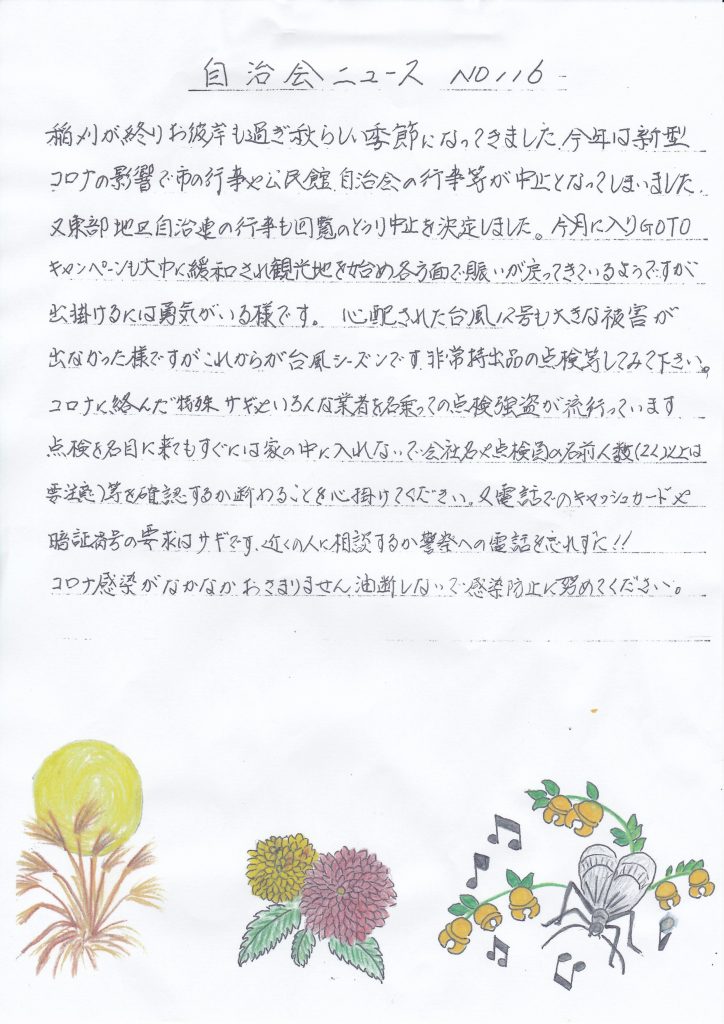 自治会ニュース NO116
稲刈が終りお彼岸も過ぎ秋らしい季節になってきました、今年は新型
コロナの影響で市の行事や公民館、自治会の行事等が中止となってしまいました、
又東部地区自治連の行事も回覧のとうり中止を決定しました。今月に入りGOTO
キャンペーンも大巾に緩和され観光地を始め各方面で賑いが戻ってきているようですが
出掛けるには勇気がいる様です。心配された台風12号も大きな被害が
出なかった様ですがこれからが台風シーズンです、非常持出品の点検等してみて下さい。
コロナに絡んだ特殊サギといろんな業者を名乗っての点検強盗が流行っています
点検を名目に来てもすぐには家の中に入れないで会社名や点検員の名前人数(2人以上は
要注意)等を確認するか断わることを心掛けてください。又電話でのキャッシュカードや
暗証番号の要求はサギです、近くの人に相談するか警察への電話を忘れずに!!
コロナ感染がなかなかおさまりません油断しないで感染防止に努めてください。